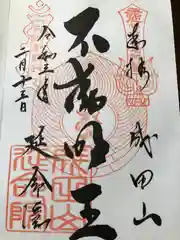 奉拝 成田山
不動明王
延命院
令和三年
二月十三日